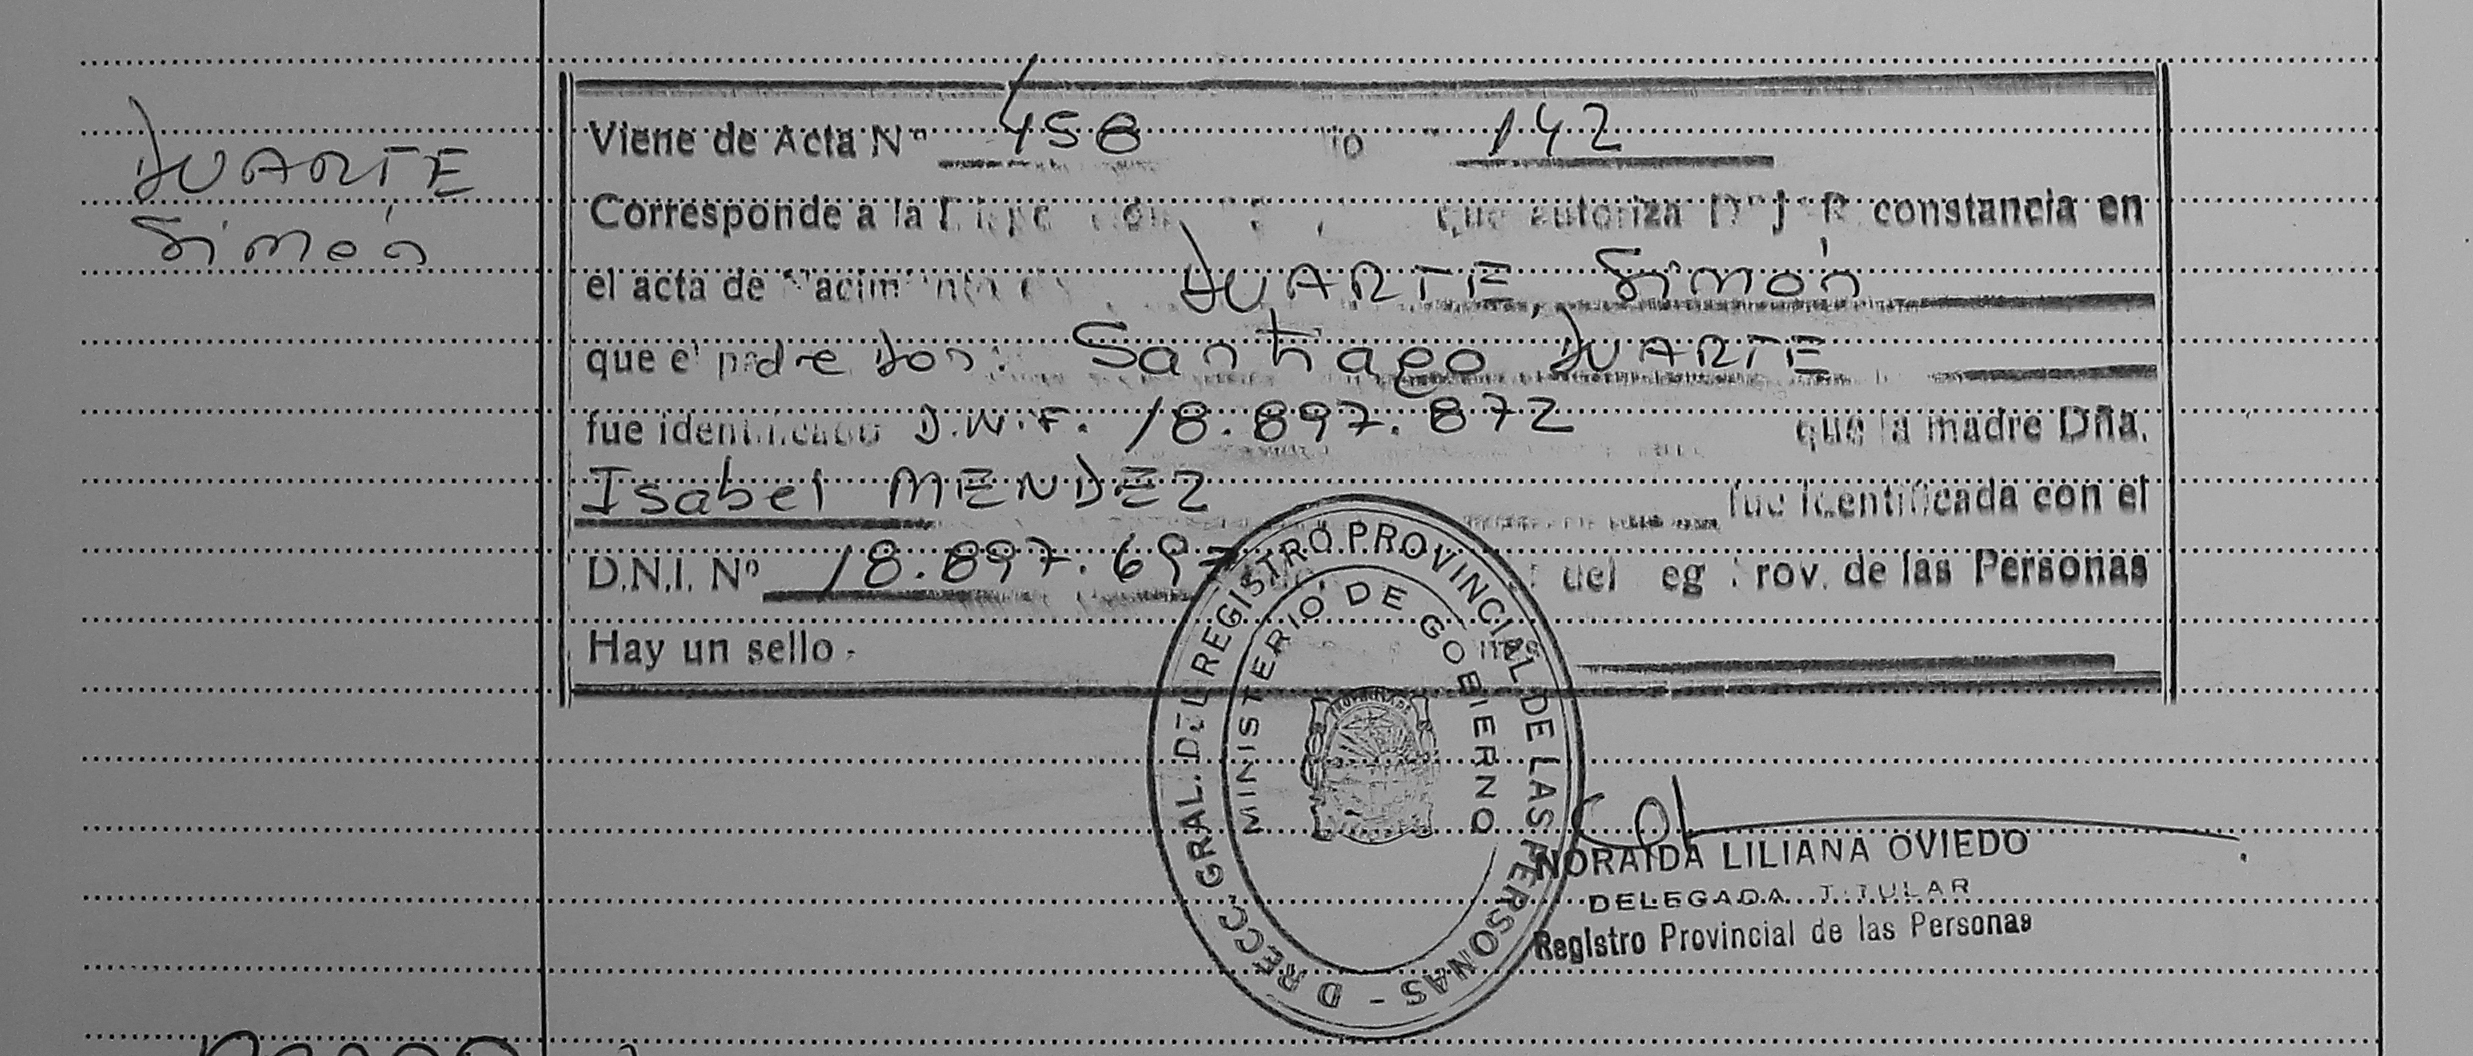 DUARTE
Simón
Viene de Acta Nº 458 142
Corresponde a la que autoriza constancia en
el acta de DUARTE, Simón
que el padre Don: Santiago DUARTE
fue identificado D.N.I. 18.897.872 que la madre Dña.
Isabel MENDEZ fue identificada con el
D.N.I. Nº 18.897.697 del eg Prov. de las Personas
Hay un sello.
DIRECC. GRAL. DEL REGISTRO PROVINCIAL DE LAS PERSONAS -
MINISTERIO DE GOBIERNO
NORAIDA LILIANA OVIEDO
DELEGADA TITULAR
Registro Provincial de las Personas